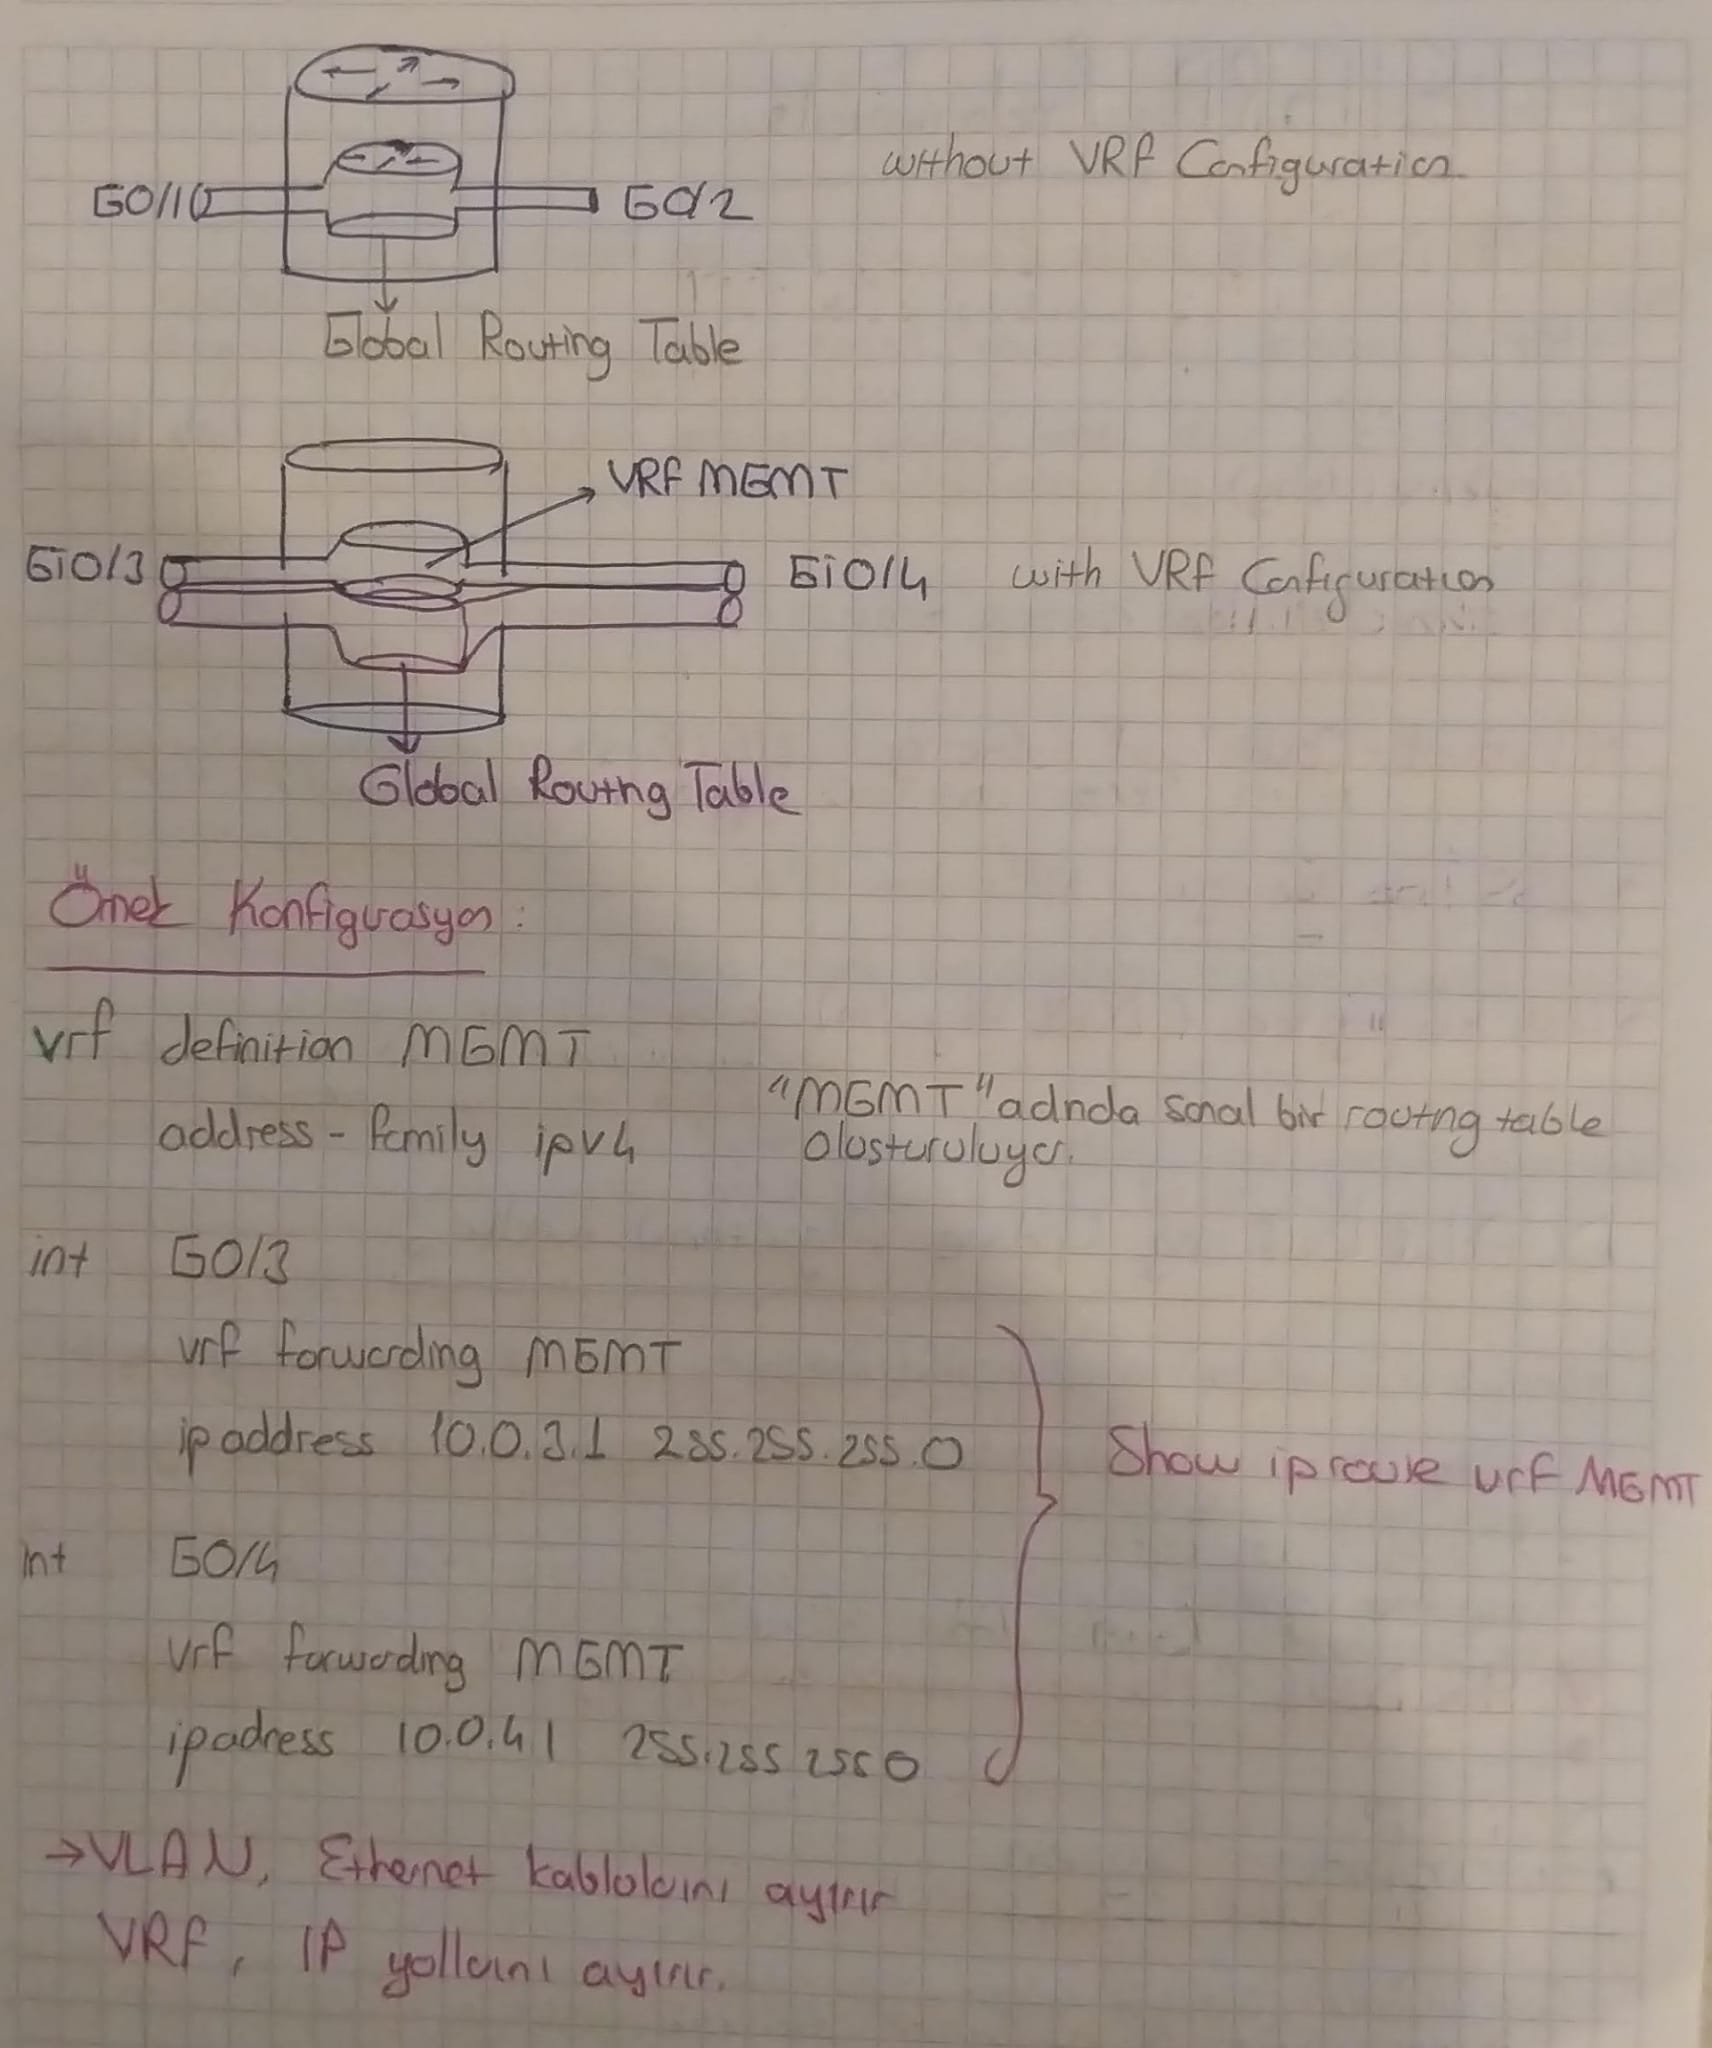 without VRF Configuration
G0/1 G0/2
Global Routing Table
VRF MGMT
Gi0/3 Gi0/4 with VRF Configuration
Global Routing Table
Örnek Konfigurasyon:
vrf definition MGMT
address-family ipv4
"MGMT" adında sanal bir routing table
oluşturuluyor.
int G0/3
vrf forwarding MGMT
ip address 10.0.3.1 255.255.255.0
Show ip route vrf MGMT
int G0/4
vrf forwarding MGMT
ip adress 10.0.4 1 255.255 255 0
→VLAN, Ethernet kablolarını ayırır
VRF, IP yollarını ayırır.